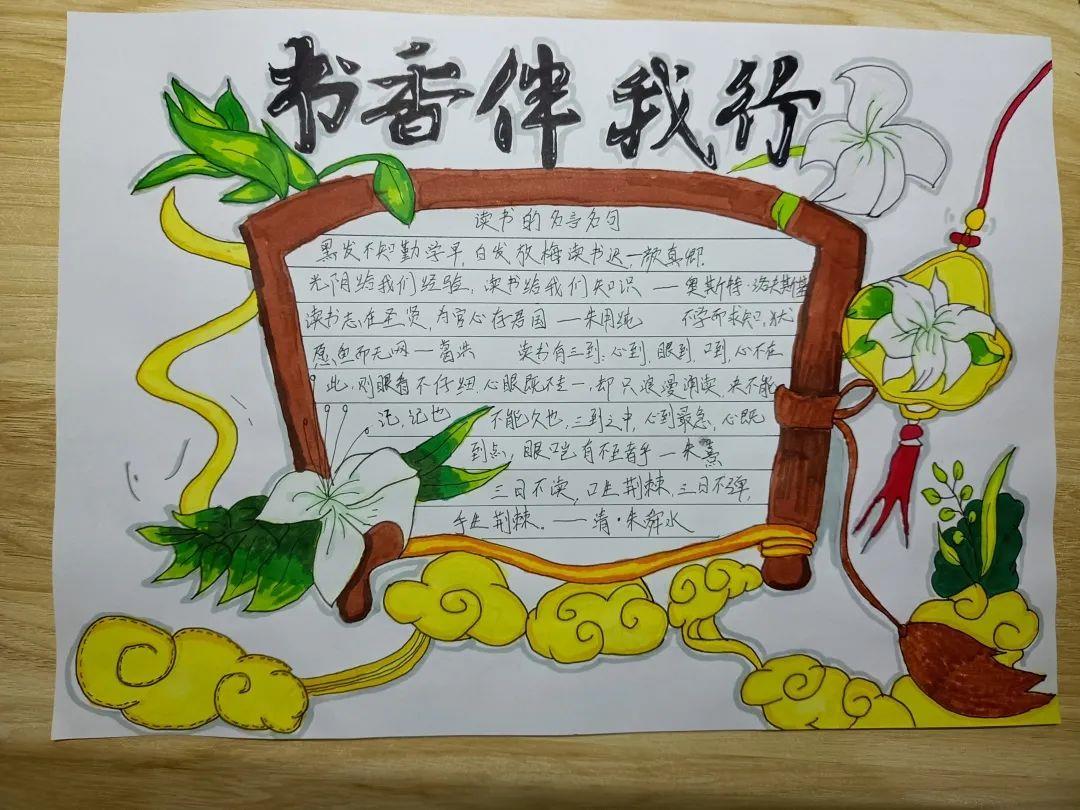 书香伴我行
读书的名言名句
黑发不知勤学早,白发放悔读书迟—颜真卿.
光阴给我们经验,读书给我们知识 — 奥斯特·洛夫斯基
读书志在圣贤,为官心存君国 — 朱用纯 不学而求知,犹
愿鱼而无网 — 葛洪 读书有三到:心到,眼到,口到,心不在
此,则眼看不仔细,心眼既不专一,却只浪漫诵读,决不能
记,记也 不能久也,三到之中,心到最急,心既
到点,眼口岂有不至者乎 — 朱熹
三日不读,口生荆棘,三日不弹,
手生荆棘. — 清·朱舜水